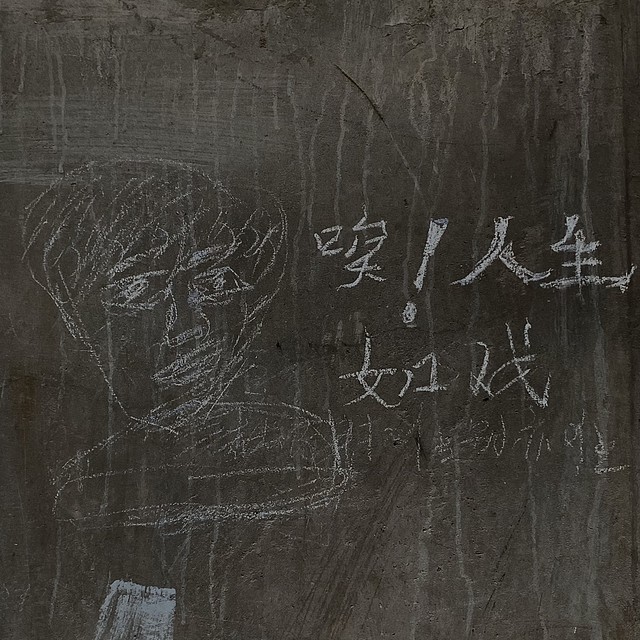 唉！人生
如戏